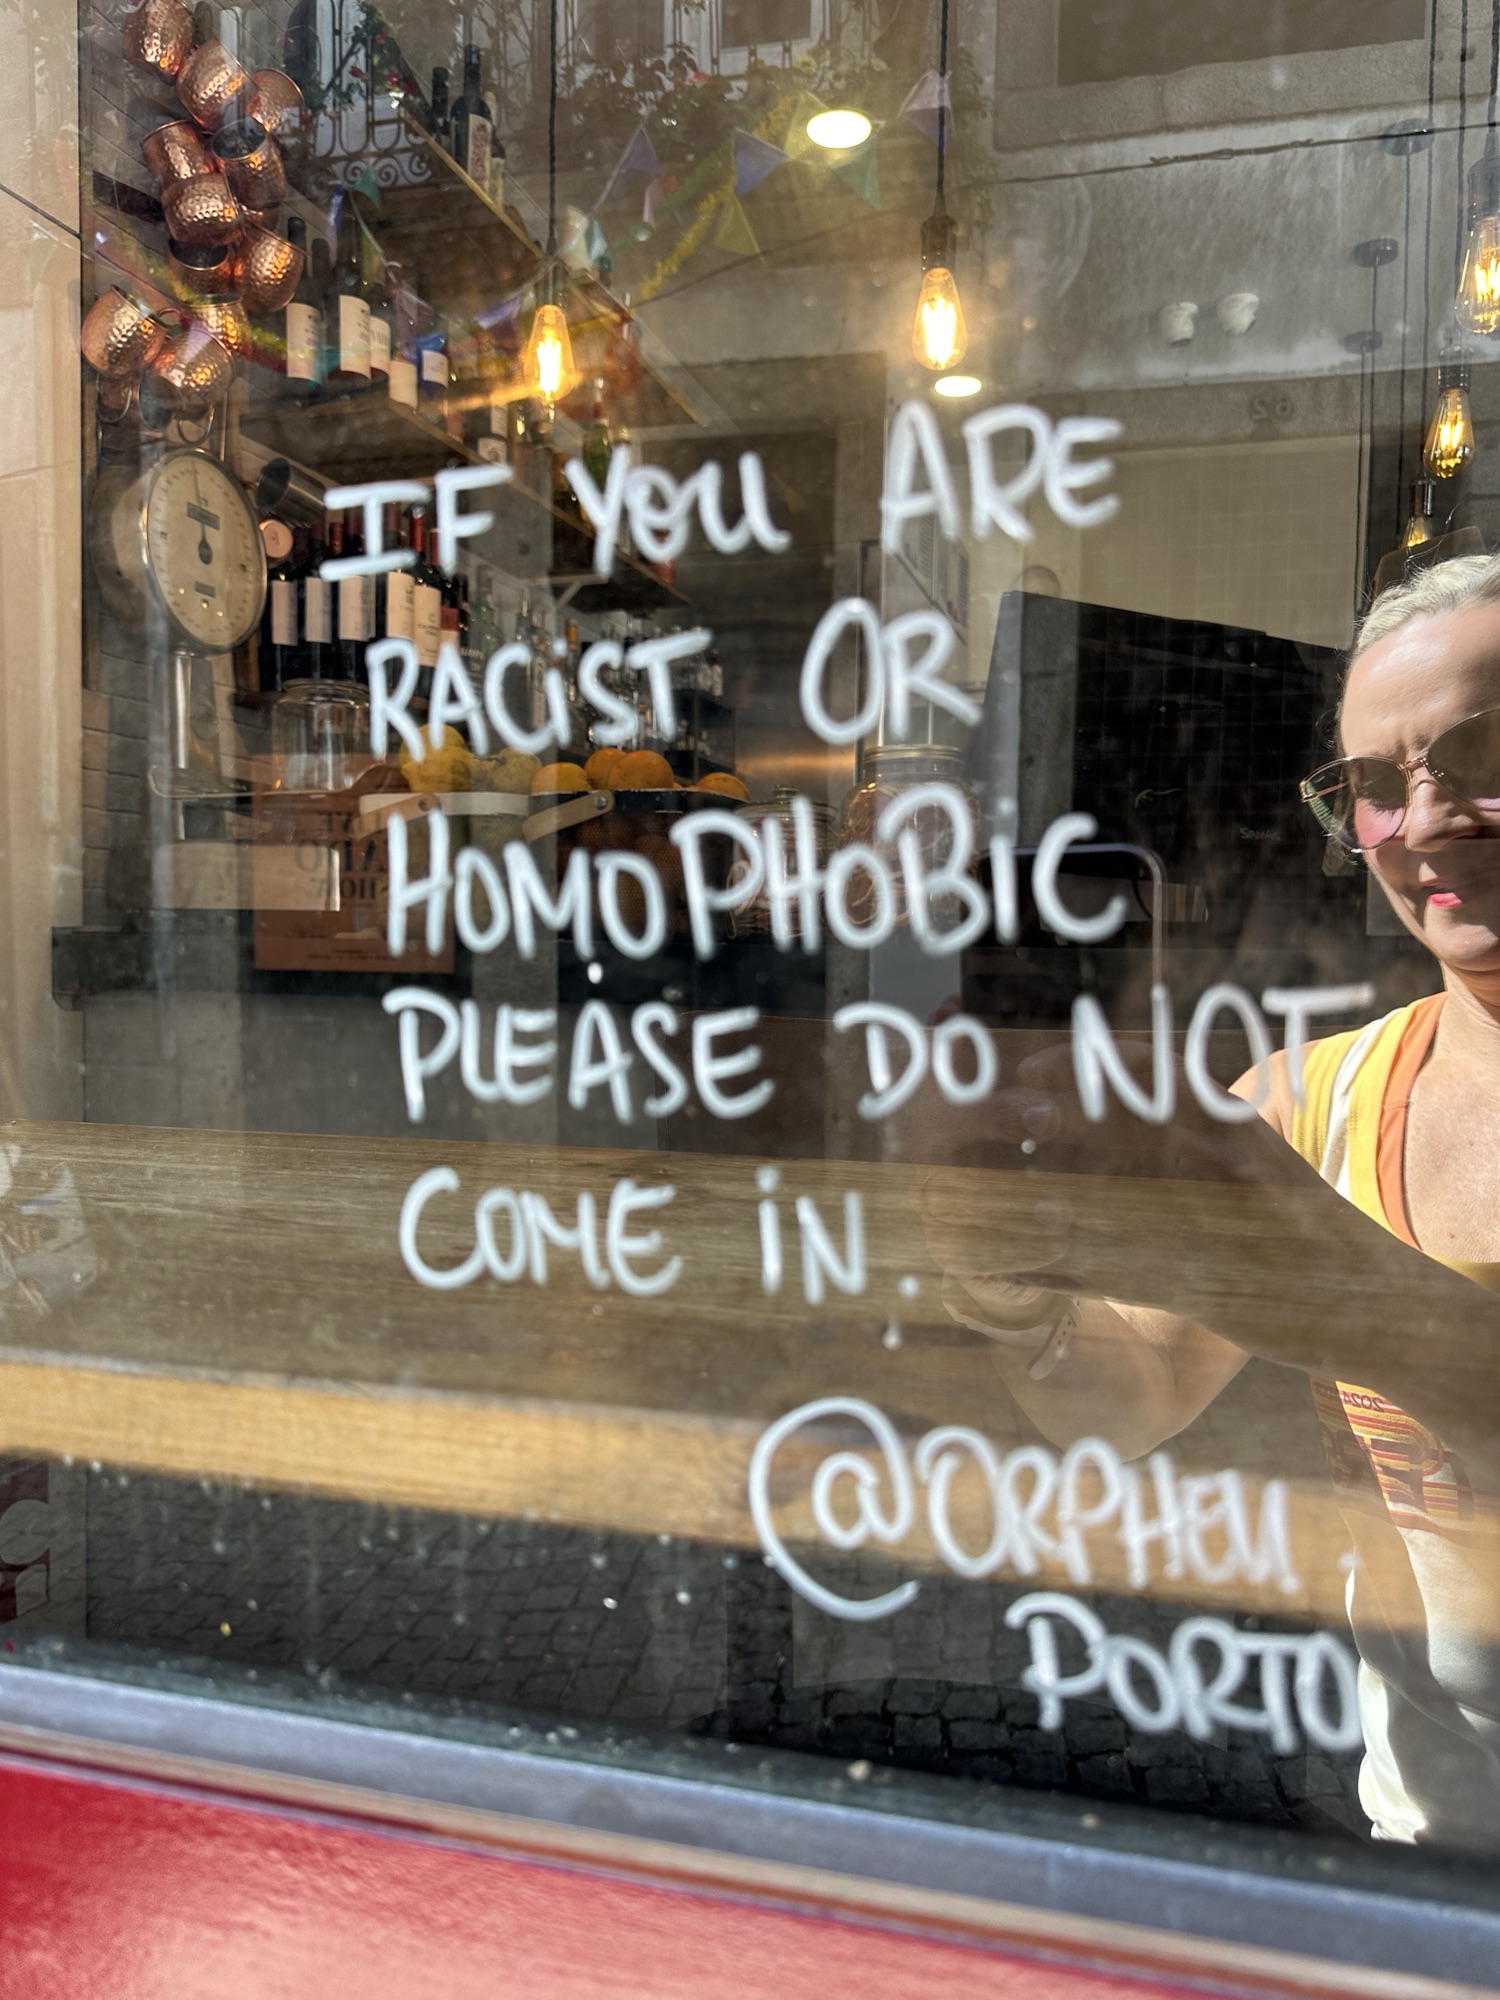 IF YOU ARE
RACIST OR
HOMOPHOBIC
PLEASE DO NOT
COME IN.
@ORPHEU.
PORTO